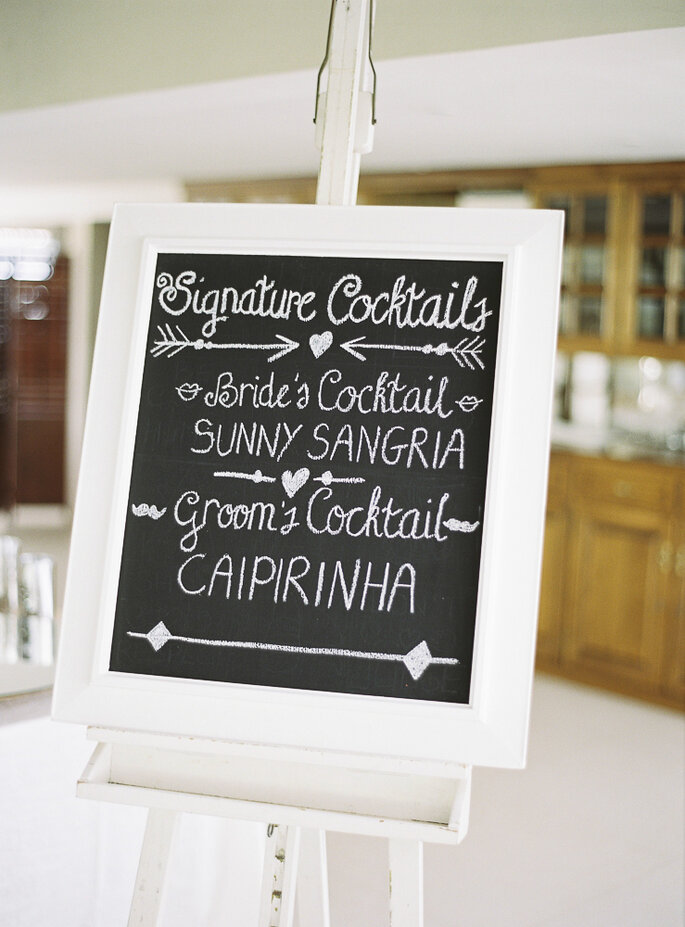 Signature Cocktails
Bride's Cocktail
SUNNY SANGRIA
Groom's Cocktail
CAIPIRINHA